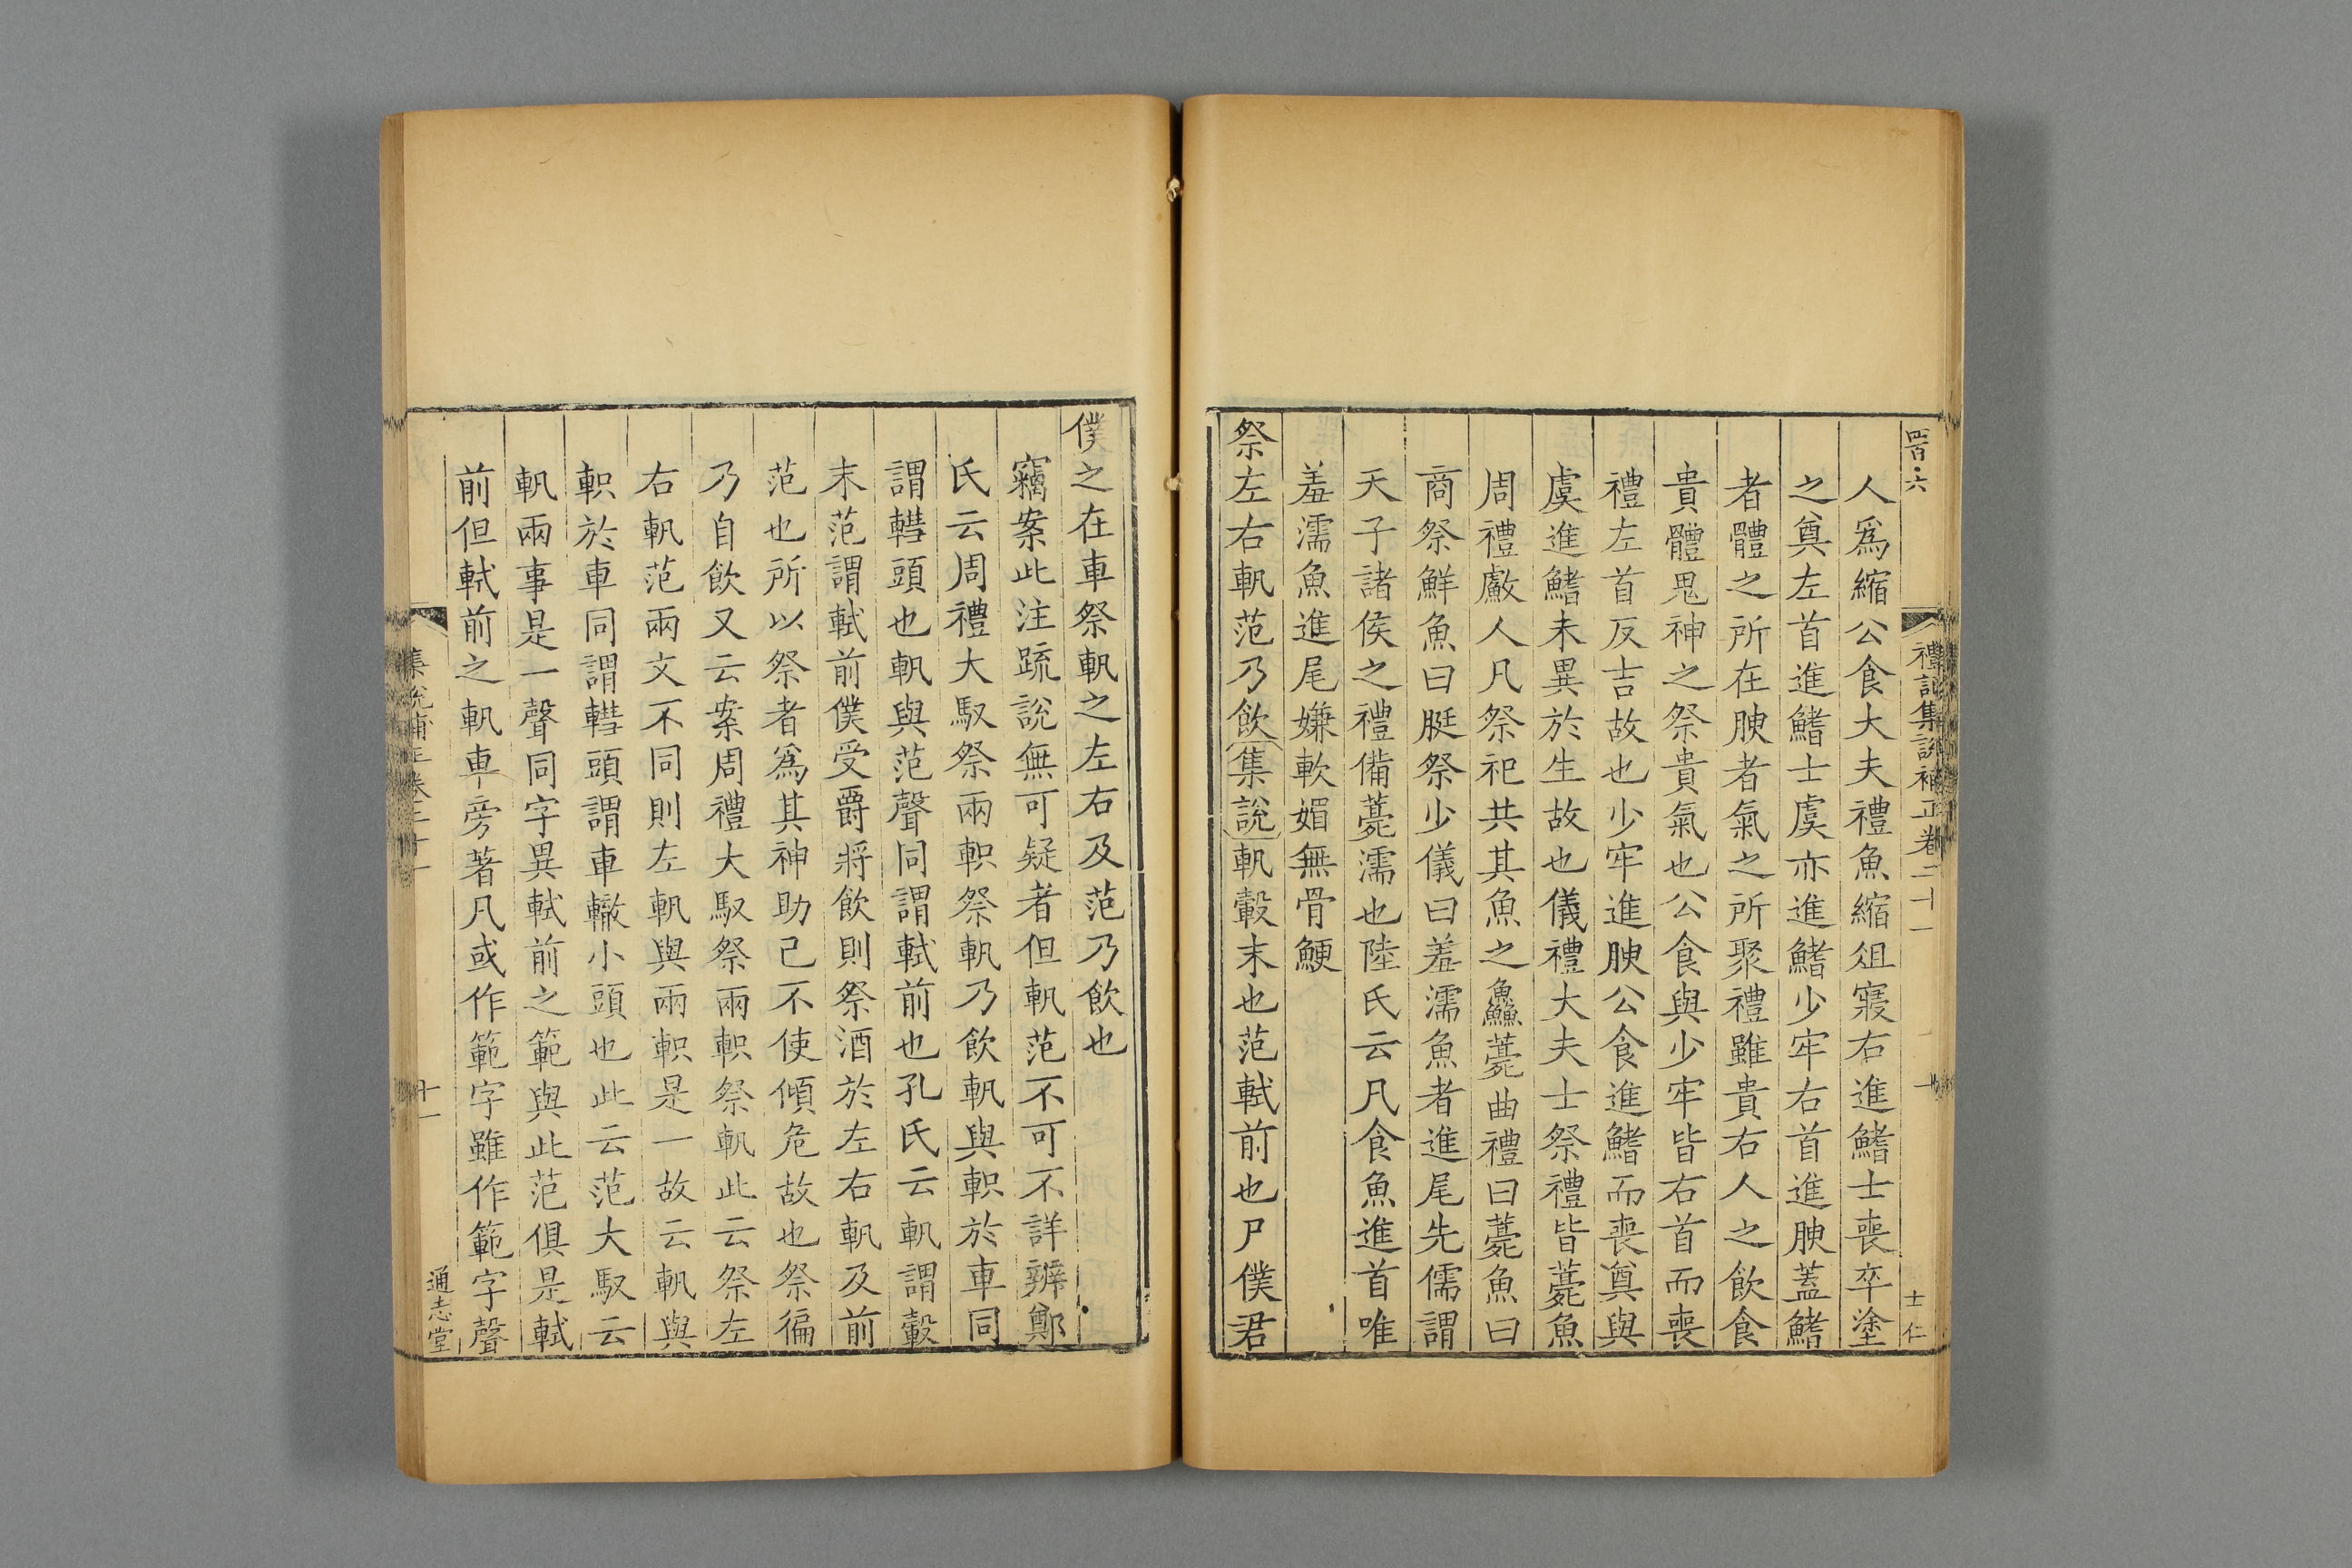 四百六
禮記集說補正卷二十一
士仁
人爲縮公食大夫禮魚縮俎寢右進鰭士喪卒塗
之奠左首進鰭士虞亦進鰭少牢右首進腴蓋鰭
者體之所在腴者氣之所聚禮雖貴右人之飲食
貴體鬼神之祭貴氣也公食與少牢皆右首而喪
禮左首反吉故也少牢進腴公食進鰭而喪奠與
虞進鰭未異於生故也儀禮大夫士祭禮皆薧魚
周禮䱷人凡祭祀共其魚之鱻薧曲禮曰薧魚曰
商祭鮮魚曰脡祭少儀曰羞濡魚者進尾先儒謂
天子諸侯之禮備薧濡也陸氏云凡食魚進首唯
羞濡魚進尾嫌軟媚無骨鯁
祭左右軓范乃飲集說軓轂末也范軾前也尸僕君
僕之在車祭軓之左右及范乃飲也
竊案此注疏說無可疑者但軓范不可不詳辨鄭
氏云周禮大馭祭兩軹祭軓乃飲軓與軹於車同
謂轊頭也軓與范聲同謂軾前也孔氏云軓謂轂
末范謂軾前僕受爵將飲則祭酒於左右軓及前
范也所以祭者爲其神助己不使傾危故也祭徧
乃自飲又云案周禮大馭祭兩軹祭軓此云祭左
右軓范兩文不同則左軓與兩軹是一故云軓與
軹於車同謂轊頭謂車轍小頭也此云范大馭云
軓兩事是一聲同字異軾前之範與此范俱是軾
前但軾前之軓車旁著凡或作範字雖作範字聲
集說補正卷二十一
十一
通志堂